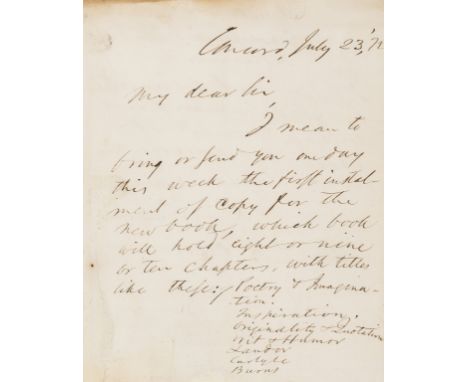 Concord, July 23,
My dear Sir,
I mean to
bring or send you one day
this week the first instal-
ment of copy for the
new book, which book
will hold eight or nine
or ten chapters, with titles
like these: Poetry & Imagina-
tion.
Inspiration.
Originality & Quotation
Wit & Humor
Landor
Carlyle
Burns